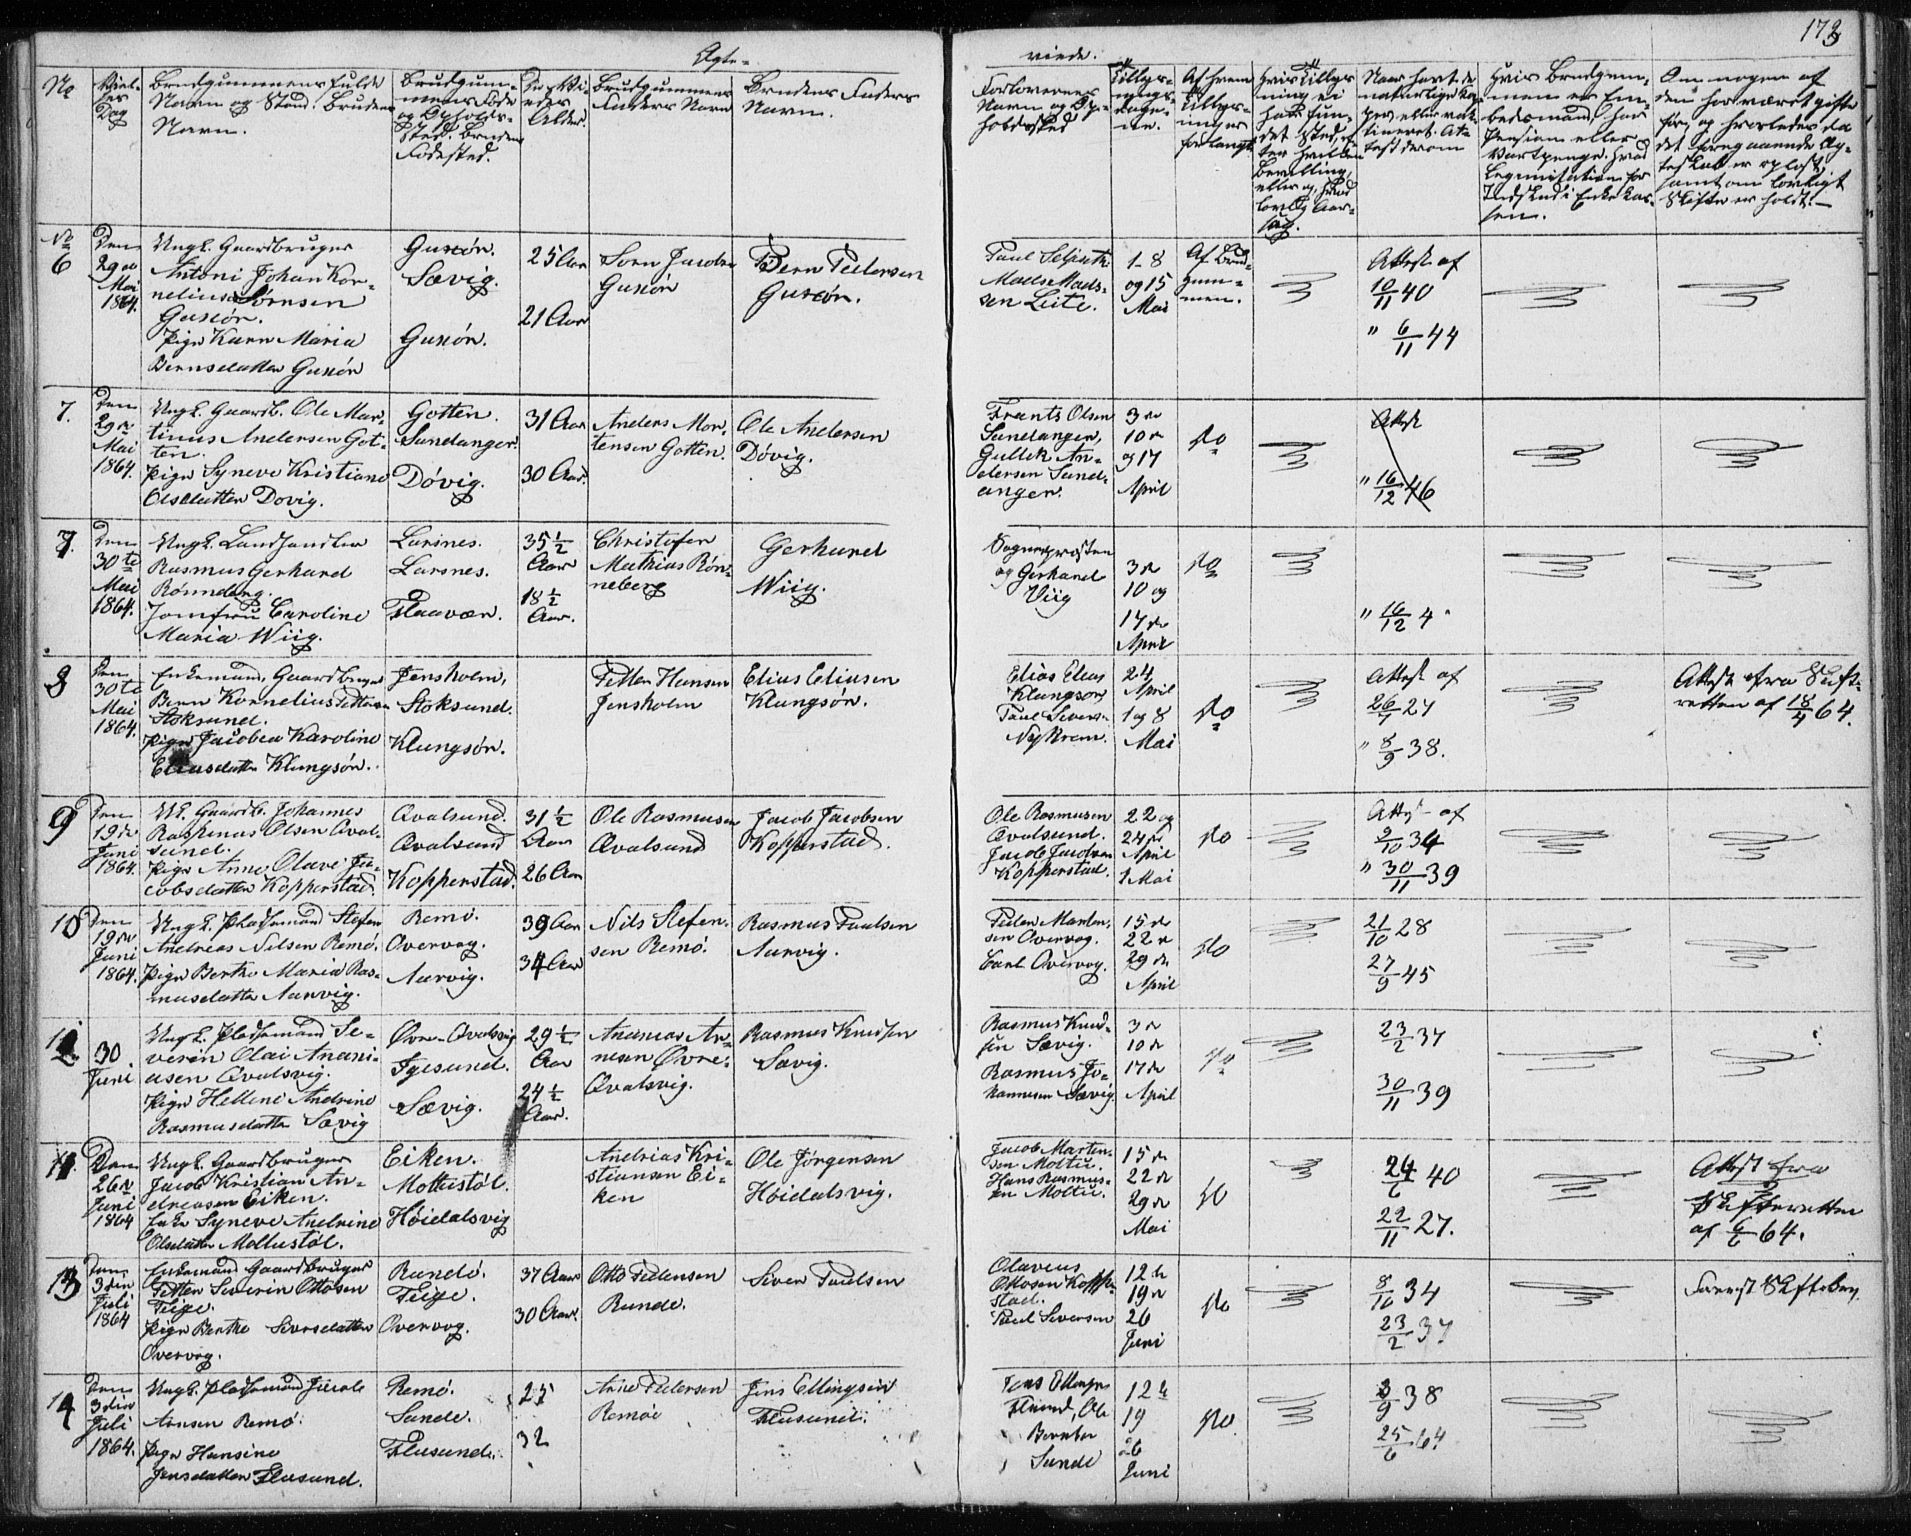 173
Ægte-
viede.
No
Vielses
Dag
Brudgummens fulde
Navn og Stand. Brudens
Navn.
Brudgum-
mens Føde
og Opholds-
sted. Brudens
Fødested.
De Vi-
edes
Alder.
Brudgummens
Faders Navn
Brudens Faders
Navn.
Forlovernes
Navn og Op-
holdssted
Tillys-
nings-
dage-
ne.
Af hvem
Tillys-
ning er
forlangt
Naar havt de
naturlige Kop-
per, eller vac-
cineret. At-
test derom
Hvis Brudgum-
men er Em-
bedsmand, har
Pension eller
Vartpenge. Hvad
Legimitation for
Indskud i Enkekas-
sen.
Om nogen af
dem har været gifte
før, og hvorledes da
det foregaaende Æg-
teskab er opløst,
samt om lovligt
Skifte er holdt.
No
6
Den
29de
Mai
1864.
Ungk. Gaardbruger
Antoni Johan Kor-
nelius Sørnsen
Gurskøn.
Pige Karn Maria
Bernsdatter
Sævig.
25 Aar
21 Aar
Sørn Jacobsen
Bern Pedersen
Mads Mads-
sen Leite.
1-8
og 15
Mai
Af Brud-
gum-
men.
Attest af
10/11 40
" 6/11 44
7.
Den
29de
Mai
1864.
Ungk. Gaardb. Ole Mar-
tinus Andersen Got-
ten.
Pige Syneve Kristiane
Olsdatter Dovig.
Gotten.
Sandanger.
Døvig.
31 Aar
30 Aar.
Anders Mor-
tensen Gotten.
Ole Andersen
Døvig.
Frants Olsen
Sandanger,
Gullek An-
dersen Sand-
anger.
3de
10de
og 17
April
do
Attest
" 16/12 46
7.
Den
30te
Mai
1864.
Ungk. Landhandler
Rasmus Gerhard
Rønneberg.
Jomfru Caroline
Maria Wiig.
Larsnes.
Larsnes.
Flaavær.
35 1/2
Aar
18 1/2
Aar.
Christofer
Mathias Røn-
neberg
Gerhard
Wiig.
Sogneprosten
og Gerhard
Viig
3de
10 og
17de
April
do
" 16/12 4
8
Den
30te
Mai
1864.
Enkemand, Gaardbruger
Bern Kornelius Pettersen
Stoksund.
Pige Jacobea Karoline
Eliasdatter Klungsøn.
Jensholm,
Stoksund.
Klungsøn.
Petter Hansen
Jensholm
Elias Eliasen
Klungsøn.
Elias Elias
Klungsøn
Paul Severs.
24
April
1 og 8
Mai
do
Attest af
27
" 8/9 38.
Attest fra Skift-
retten af 18/4 64.
9
Den
19de
Juni
1864.
UK. Gaardb. Johannes
Rasmus Olsen Qval-
sund.
Pige Anne Olave Ja-
cobsdatter Kopperstad.
Qvalsund.
Qvalsund
Kopperstad.
31 1/2
Aar
26 Aar
Ole Rasmusen
Qvalsund
Jacob Jacobsen
Kopperstad.
Ole Rasmusen
Qvalsund.
Jacob Jacobsen
Kopperstad.
22 og
24de
April
1 Mai
do
Attest af
9/10 34
" 30/11 39
10
Den
19de
Juni
1864.
Ungk. Pladsmand Stefen
Andreas Nilsen Remø.
Pige Berthe Maria Ras-
musdatter Aarvig.
Remø.
Overvog.
Aarvig.
39 Aar
34 Aar
Nils Stefen-
sen Remø.
Rasmus Paulsen
Aarvig.
Peder Marten-
sen Overvog.
Carl Overvog.
15de
22de
29de
April
do
21/10 28
27/9 45
12
30
Juni
Ungk. Pladsmand Se-
verin Olai Anani-
asen Qvalsvig.
Pige Hellene Andrine
Rasmusdatter Sævig
Øvre-Qvalsvig
Igesund.
Sævig.
29 1/2
Aar
24 1/2
Aar.
Ananias An-
nesen Øvre-
Qvalsvig.
Rasmus Knudsen
Sævig.
Rasmus Knud-
sen Sævig.
Rasmus Jo-
hannesen Sævig.
3de
10de
17de
April
do
23/2 37
30/11 39
11
Den
26de
Juni
1864
Ungk. Gaardbruger
Jacob Kristian An-
dreasen Eiken.
Enke Syneve Andrine
Olsdatter Moltustøl.
Eiken.
Moltustøl.
Høidalsvig
Andrias Kri-
stiansen Ei-
ken
Ole Jørgensen
Høidalsvig.
Jacob Marten-
sen Moltu.
Hans Rasmus-
sen Moltu.
15de
22de
29de
Mai
do
24/6 40
22/11 27.
Attest fra
Skifteretten
af 6/6 64.
13
Den
3die
Juli
1864
Enkemand Gaardbruger
Petter Severin Ottosen
Teige.
Pige Berthe Siversdatter
Overvog.
Rundø.
Teige.
Overvog.
37 Aar
30 Aar.
Otto Pedersen
Runde.
Siver Paulsen
Olavus
Ottosen Kopper-
stad.
Paul Seversen
12te
19de
26
Juni
do
8/10 34
23/2 37
14
Den
3die
Juli
1864.
Ungk. Pladsmand Jacob
Arnsen Remø.
Pige Hansine
Jensdatter Flusund.
Remø.
Sande.
Flusund.
25
32
Arne Pedersen
Remøe
Jens Ellingsen
Flusund.
Jens Ellingsen
Flusund, Ole
Berntsen
Sande
12te
19
26
Juni
do.
3/9 38
25/6 64